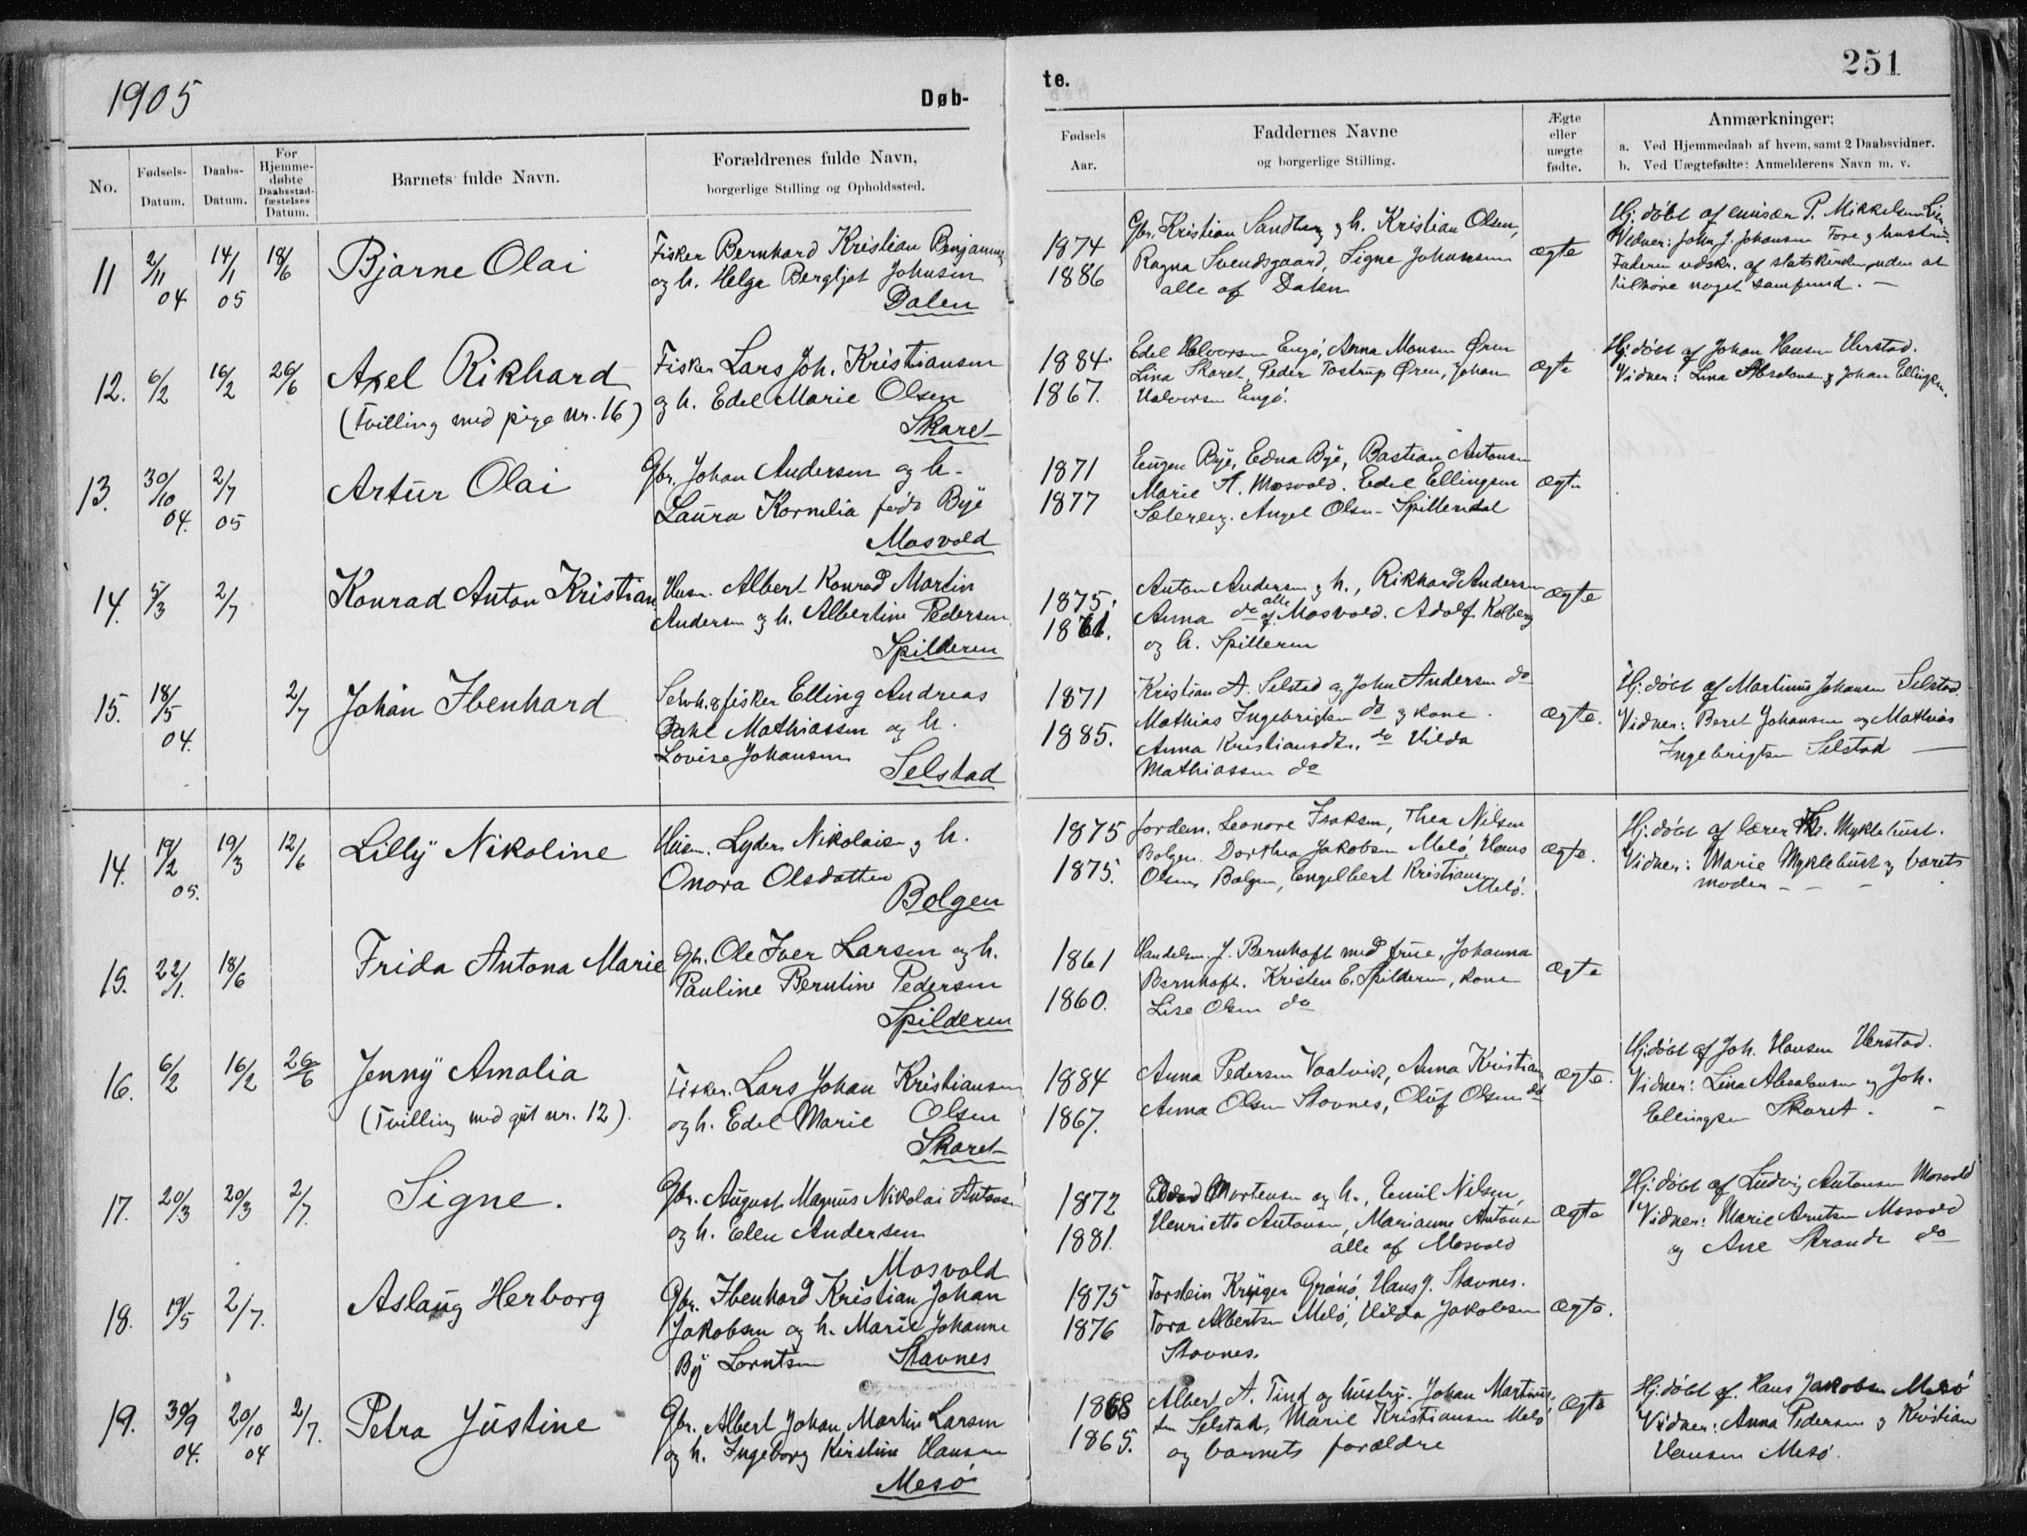 1905
Døb-
te.
251
No.
Fødsels-
Datum.
Daabs-
Datum.
For
Hjemme-
døbte
Daabsstad-
fæstelses
Datum.
Barnets fulde Navn.
Forældrenes fulde Navn,
borgerlige Stilling og Opholdssted.
Fødsels
Aar.
Faddernes Navne
og borgerlige Stilling.
Ægte
eller
uægte
fødte.
Anmærkninger:
a. Ved Hjemmedaab af hvem, samt 2 Daabsvidner.
b. Ved Uægtefødte: Anmelderens Navn m. v.
11 2/11 04 14/1 05 18/6
Bjarne Olai
Fisker Bernhard Kristian Benjamins
og h. Helga Bergljot Johnsen
Dalen
1874
1886
Gbr. Kristian Sandberg og h. Kristian Olsen,
Ragna Svendsgaard, Signe Johansen
alle af Dalen
ægte
Hj. døbt af emisær P. Mikkelsen
Vidner: John J. Johansen Tore og hustru.
Faderen udskr. af statskirken, uden at
tilhøre noget samfund. —
12. 6/2 16/2 26/6
Axel Rikhard
(Tvilling med pige nr. 16)
Fisker Lars Joh. Kristiansen
og h. Edel Marie Olsen
Skaret
1884.
1867.
Edel Halvorsen Engø, Anna Monsen Øren
Lina Skaret, Peder Tostrup Øren, Johan
Halvorsen Engø.
ægte
Hj. døbt af Johan Hansen Verstad.
Vidner: Lina Absalonsen og Johan Ellingsen.
13. 30/10 04. 2/7 05
Artur Olai
Gbr. Johan Andersen og h.
Laura Kornelia født Bye
Mosvold
1871
1877
Eugen Bye, Edna Bye, Bastian Antonsen
Marie A. Mosvold. Edel Ellingsen
Sætereng. Angel Olsen - Spillerdal
ægte
14. 5/3 2/7
Konrad Anton Kristian
Husm. Albert Konrad Martin
Andersen og h. Albertine Pedersen
Spilderen
1875.
1861.
Anton Andersen og h., Rikhard Andersen
Anna do alle af Mosvold. Adolf Kolberg
og h. Spilleren
ægte
15. 18/5 04. 2/7
Johan Ibenhard
Selvh. & fisker Elling Andreas
Dahl Mathiassen og h.
Lovise Johansen
Selstad
1871
1885.
Kristian A. Selstad og John Andersen do
Mathias Ingebrigtsen do og kone.
Anna Kristiansdtr. do Hilda
Mathiassen do
ægte.
Hj. døbt af Martinus Johansen Selstad.
Vidner: Beret Johansen og Mathias
Ingebrigtsen Selstad —
14. 19/2 05. 19/3 12/6
Lilly Nikoline
Husm. Lyder Nikolaisen og h.
Onora Olsdatter
Bolgen
1875
1875.
Jordem. Leonore Isaksen, Thea Nilsen
Bolgen. Dorthea Jakobsen Melø, Hans
Olsen Bolgen, Engelbert Kristiansen
Melø.
ægte.
Hj. døbt af lærer Myklebust.
Vidner: Marie Myklebust og barnets
moder - - -
15. 22/1. 18/6
Frida Antona Marie
Gbr. Ole Iver Larsen og h.
Pauline Berntine Pedersen
Spilderen
1861
1860.
Handelsm. J. Bernhoft med frue, Johanna
Bernhoft. Kristen E. Spilderen, kone
Lise Olsen do
ægte
16. 6/2 16/2 26/6
Jenny Amalia
(Tvilling med gut nr. 12).
Fisker. Lars Johan Kristiansen
og h. Edel Marie Olsen
Skaret
1884
1867.
Anna Pedersen Vaalvik, Anna Kristian
Anna Olsen Stovnes, Oluf Olsen do
ægte.
Hj. døbt af Joh. Hansen Verstad.
Vidner: Lina Absalonsen og Joh.
Ellingsen Skaret. -
17. 20/3 20/3 2/7.
Signe.
Gbr. August Magnus Nikolai Antonsen
og h. Elen Andersen
Mosvold
1872
1881.
Edvard Mortensen og h., Emil Nilsen,
Henriette Antonsen, Marianne Antonsen
alle af Mosvold
ægte
Hj. døbt af Ludvig Antonsen Mosvold
Vidner: Marie Arntsen Mosvold
og Ane Strande do
18. 19/5 2/7.
Aslaug Herborg
Gbr. Ibenhard Kristian Johan
Jakobsen og h. Marie Johanne
By Lorntsen Stavnes
1875
1876
Torstein Krüger Grønø, Hans J. Stavnes.
Tora Albertsen Melø, Hilda Jakobsen
Stovnes.
ægte.
19. 30/9 04. 20/10 04 2/7.
Petra Justine
Gbr. Albert Johan Martin Larsen
og h. Ingeborg Kirstine Hansen
Mesø
1868
1865.
Albert A. Tind og hustru. Johan Martinus-
sen Selstad, Marie Kristiansen Melø
og barnets forældre
Ægte
Hj. døbt af. Hans Jakobsen Mesø
Vidner: Anna Pedersen og Kristian
Hansen Mesø.